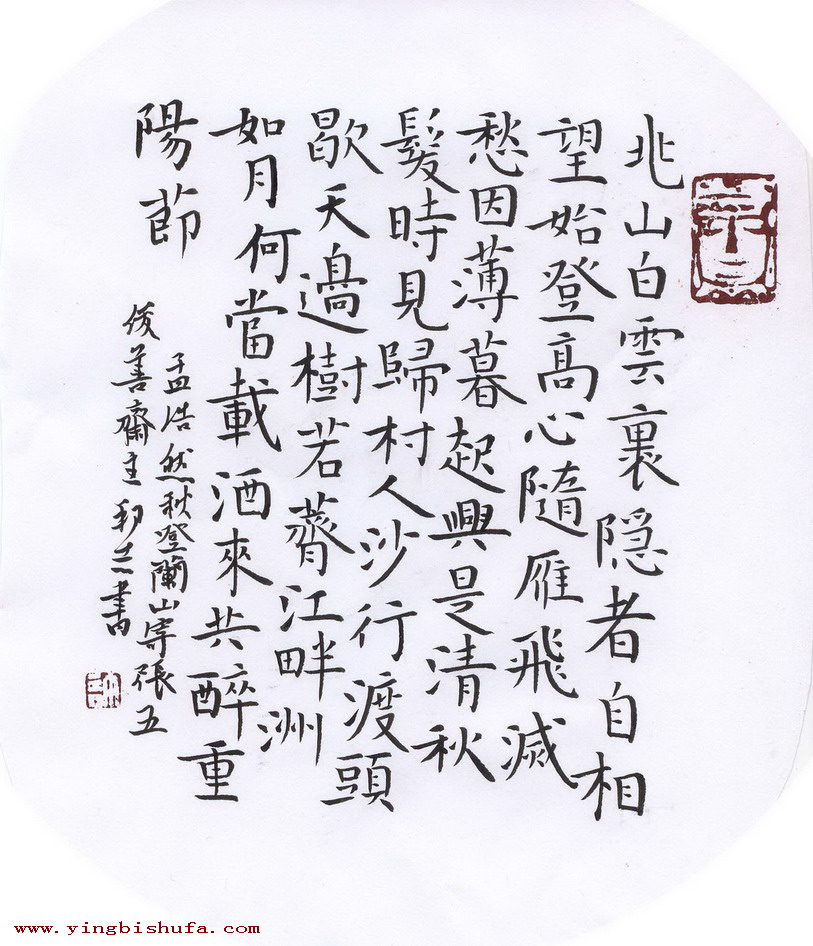 北山白雲裏隐者自相
望始登高心隨雁飛滅
愁因薄暮起興是清秋
髮時見歸村人沙行渡頭
歇天邊樹若薺江畔洲
如月何當載酒來共醉重
陽節
孟浩然秋登蘭山寄張五
善齋主書
www.yingbishufa.com